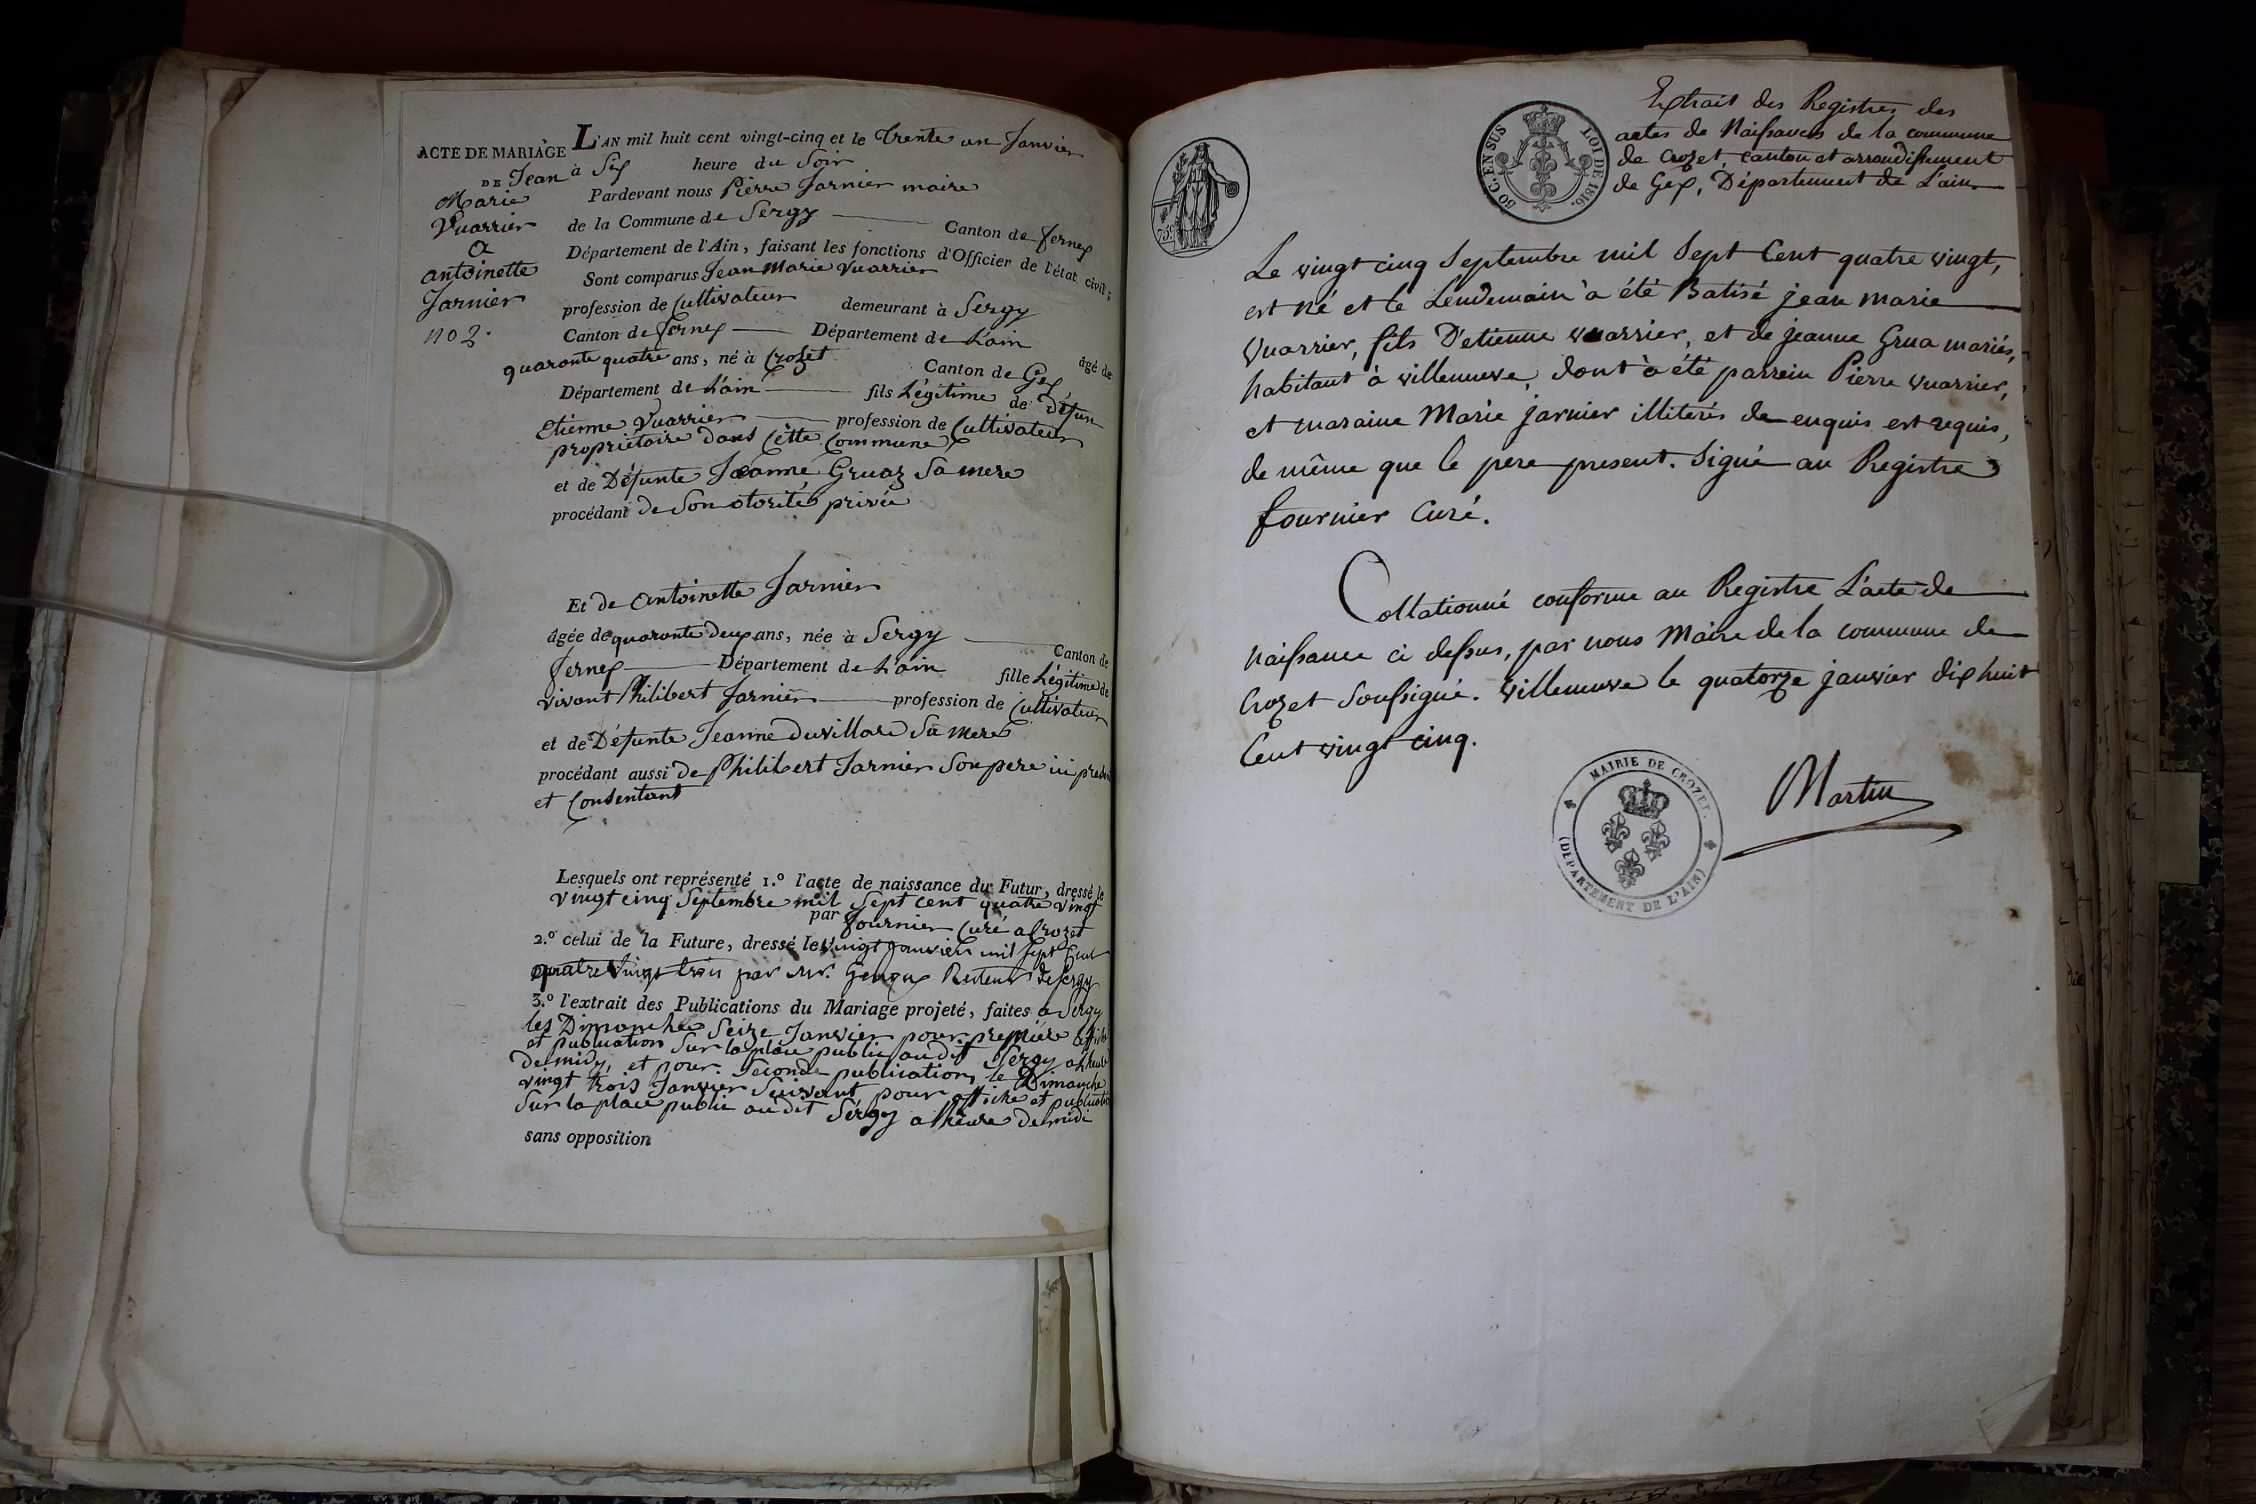 ACTE DE MARIAGE
DE Jean
Marie
Vuarrier
a
antoinette
Jarnier
no 2.
L'AN mil huit cent vingt-cinq et le trente un Janvier
à Six heure du Soir
Pardevant nous Pierre Jarnier maire
de la Commune de Sergy Canton de ferney
Département de l'Ain, faisant les fonctions d'Officier de l'état civil;
Sont comparus Jean Marie Vuarrier
profession de Cultivateur demeurant à Sergy
Canton de ferney Département de L'ain âgé de
quarante quatre ans, né à Crozet Canton de Gex
Département de L'ain fils Légitime de Défun
Etienne Vuarrier profession de Cultivateur
propriétaire dans Cètte Commune
et de Défunte Jeanne Gruaz Sa mere
procédant de Son otorité privée
Et de Antoinette Jarnier
âgée de quarante deux ans, née à Sergy Canton de
ferney Département de L'ain fille Légitime de
vivant Philibert Jarnier profession de Cultivateur
et de Défunte Jeanne Duvillard Sa mere
procédant aussi de Philibert Jarnier Son pere ici
et Consentant
Lesquels ont représenté 1.° l'acte de naissance du Futur, dressé le
vingt cinq Septembre mil Sept cent quatre vingt
par fournier Curé a Crozet
2.° celui de la Future, dressé le vingt Janvier mil Sept Cent
quatre vingt trois par Mr. Genoux Recteur de Sergy
3.° l'extrait des Publications du Mariage projeté, faites a Sergy
les Dimanche Seize Janvier pour première affiche
et publication Sur la place public au dit Sergy a heure
de midy, et pour Seconde publication, le Dimanche
vingt trois Janvier Suivant, pour affiche et publication
Sur la place public au dit Sergy a heure de midi
sans opposition
75.c
50 C. EN SUS
LOI DE 1816.
Extrait des Registres des
actes de Naissances de la commune
de Crozet, canton et arrondissement
de Gex, Département de L'ain
Le vingt cinq Septembre mil Sept Cent quatre vingt,
est né et le Lendemain à été Batisé jean marie
Vuarrier, fils D'etienne vuarrier, et de jeanne Grua mariés,
habitant à villeneuve, dont à été parrein Pierre vuarrier,
et maraine Marie jarnier illiterés de enquis est requis,
de même que le pere present. Signé au Registre
fournier Curé.
Collationné conforme au Registre L'acte de
Naissance ci dessus, par nous Maire de la commune de
Crozet Soussigné. villeneuve le quatorze janvier dix huit
Cent vingt cinq.
Martin
MAIRIE DE CROZET.
(DEPARTEMENT DE L'AIN)